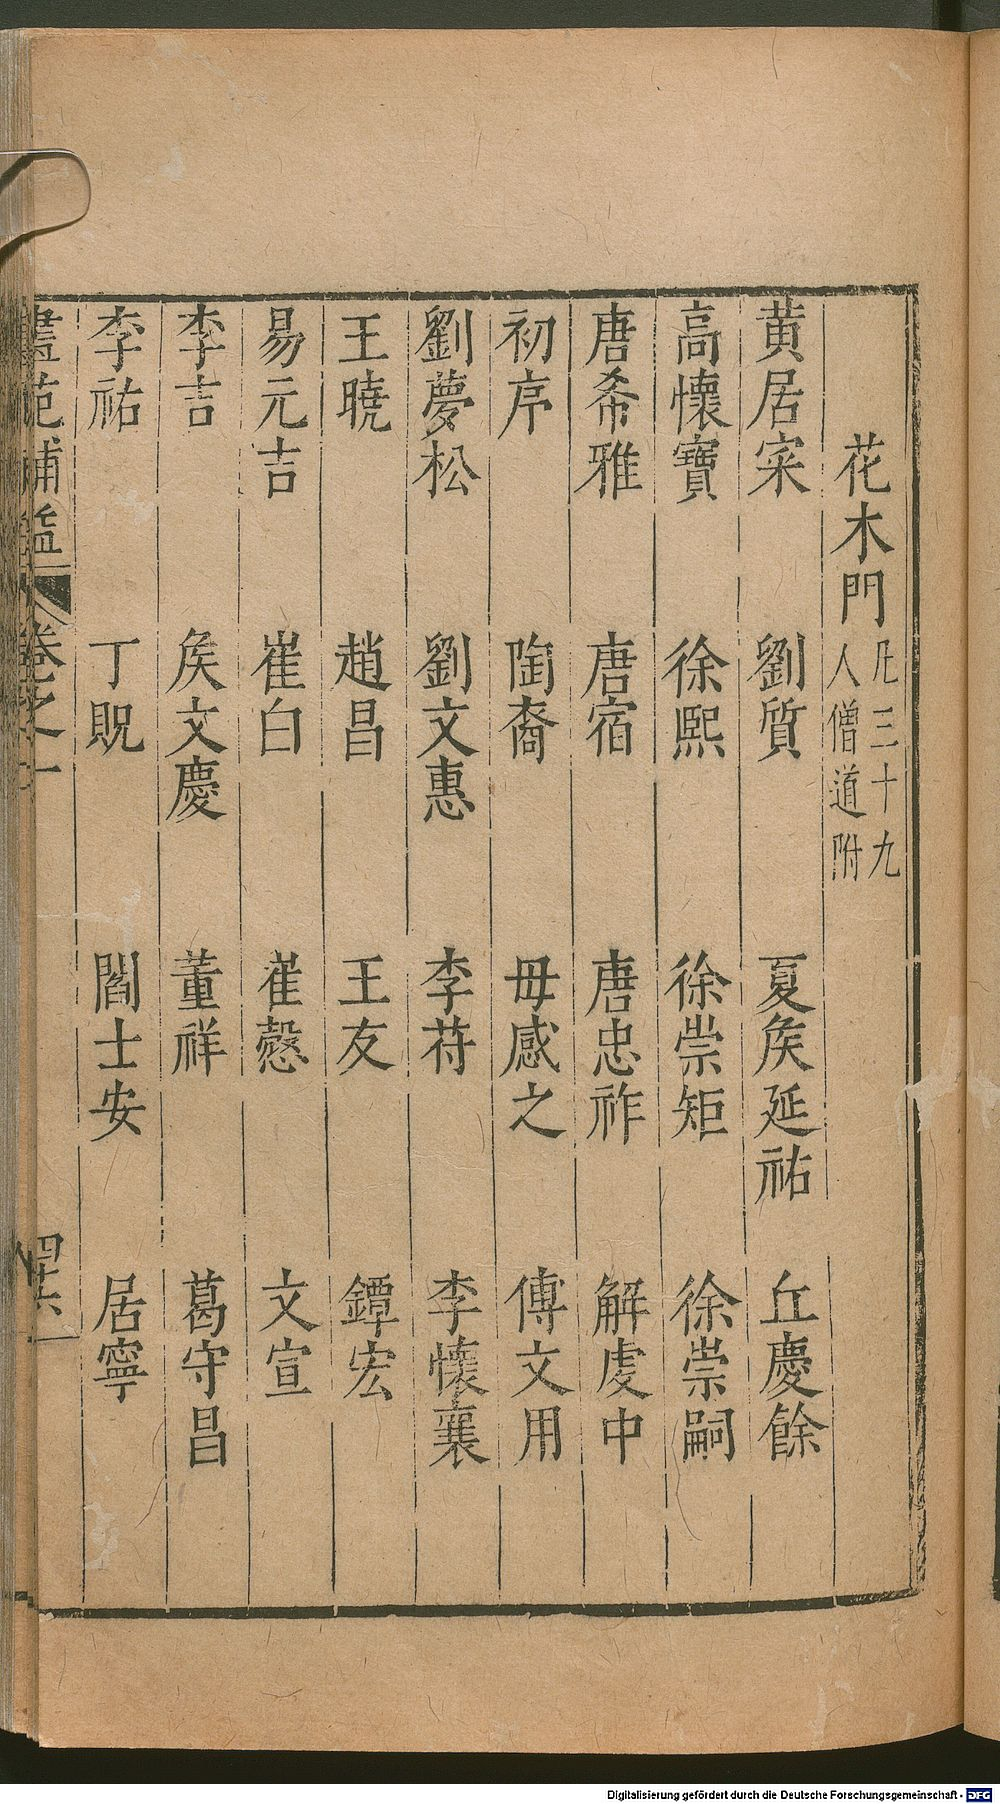 花木門凡三十九人僧道附
黄居寀 劉質 夏矦延祐 丘慶餘
高懷寶 徐熙 徐崇矩 徐崇嗣
唐希雅 唐宿 唐忠祚 解處中
初序 陶裔 毋感之 傅文用
劉夢松 劉文惠 李符 李懷袞
王曉 趙昌 王友 鐔宏
易元吉 崔白 崔慤 文宣
李吉 矦文慶 董祥 葛守昌
李祐 丁貺 閻士安 居寧
畫苑補益 卷之一 四十六
Digitalisierung gefördert durch die Deutsche Forschungsgemeinschaft - DFG